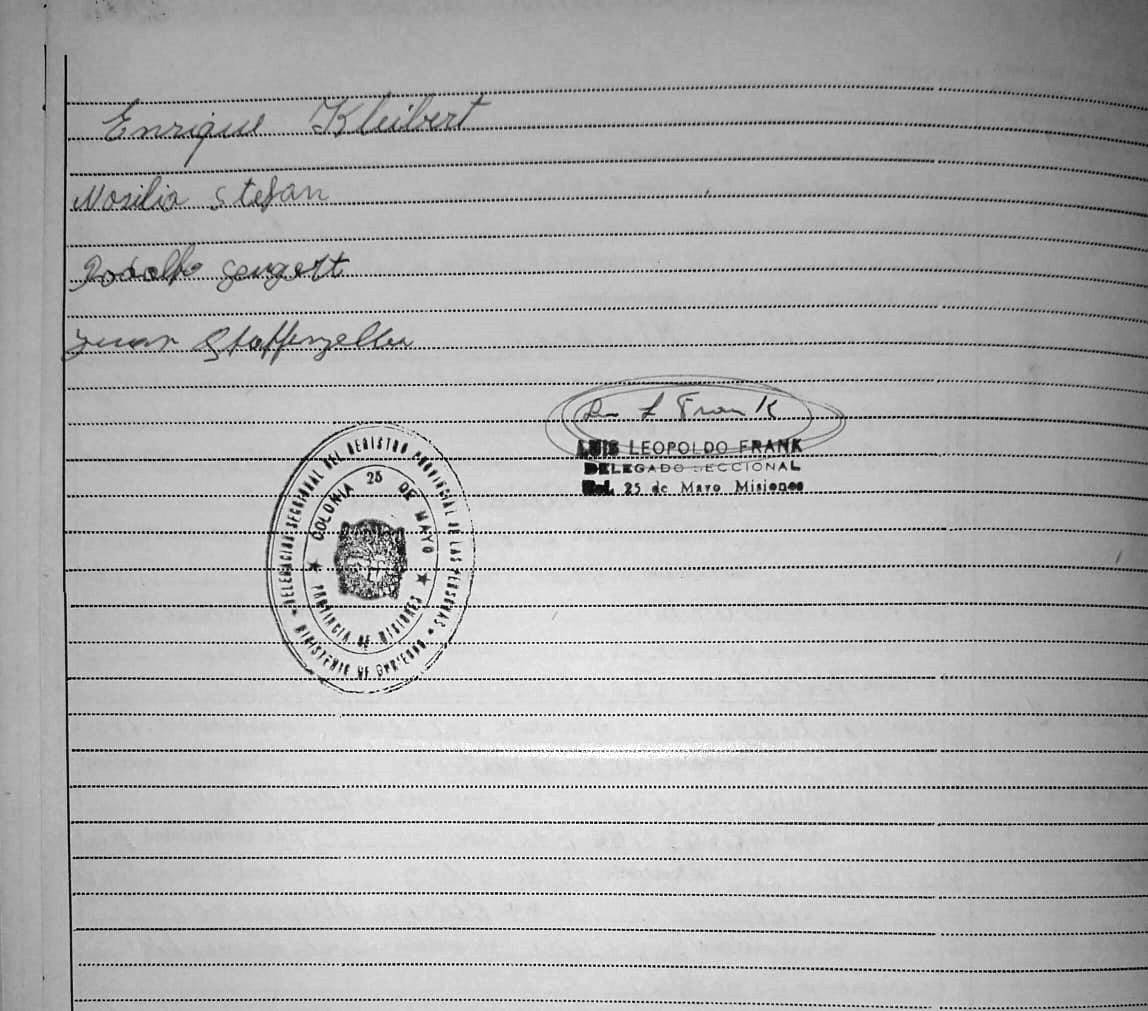 Enrique Kleibert
Stefan
Rodolfo
Juan
Frank
LUIS LEOPOLDO FRANK
DELEGADO SECCIONAL
Col. 25 de Mayo Misiones
DELEGACION SECCIONAL DEL REGISTRO PROVINCIAL DE LAS PERSONAS
MINISTERIO DE GOBIERNO
COLONIA 25 DE MAYO
PROVINCIA DE MISIONES